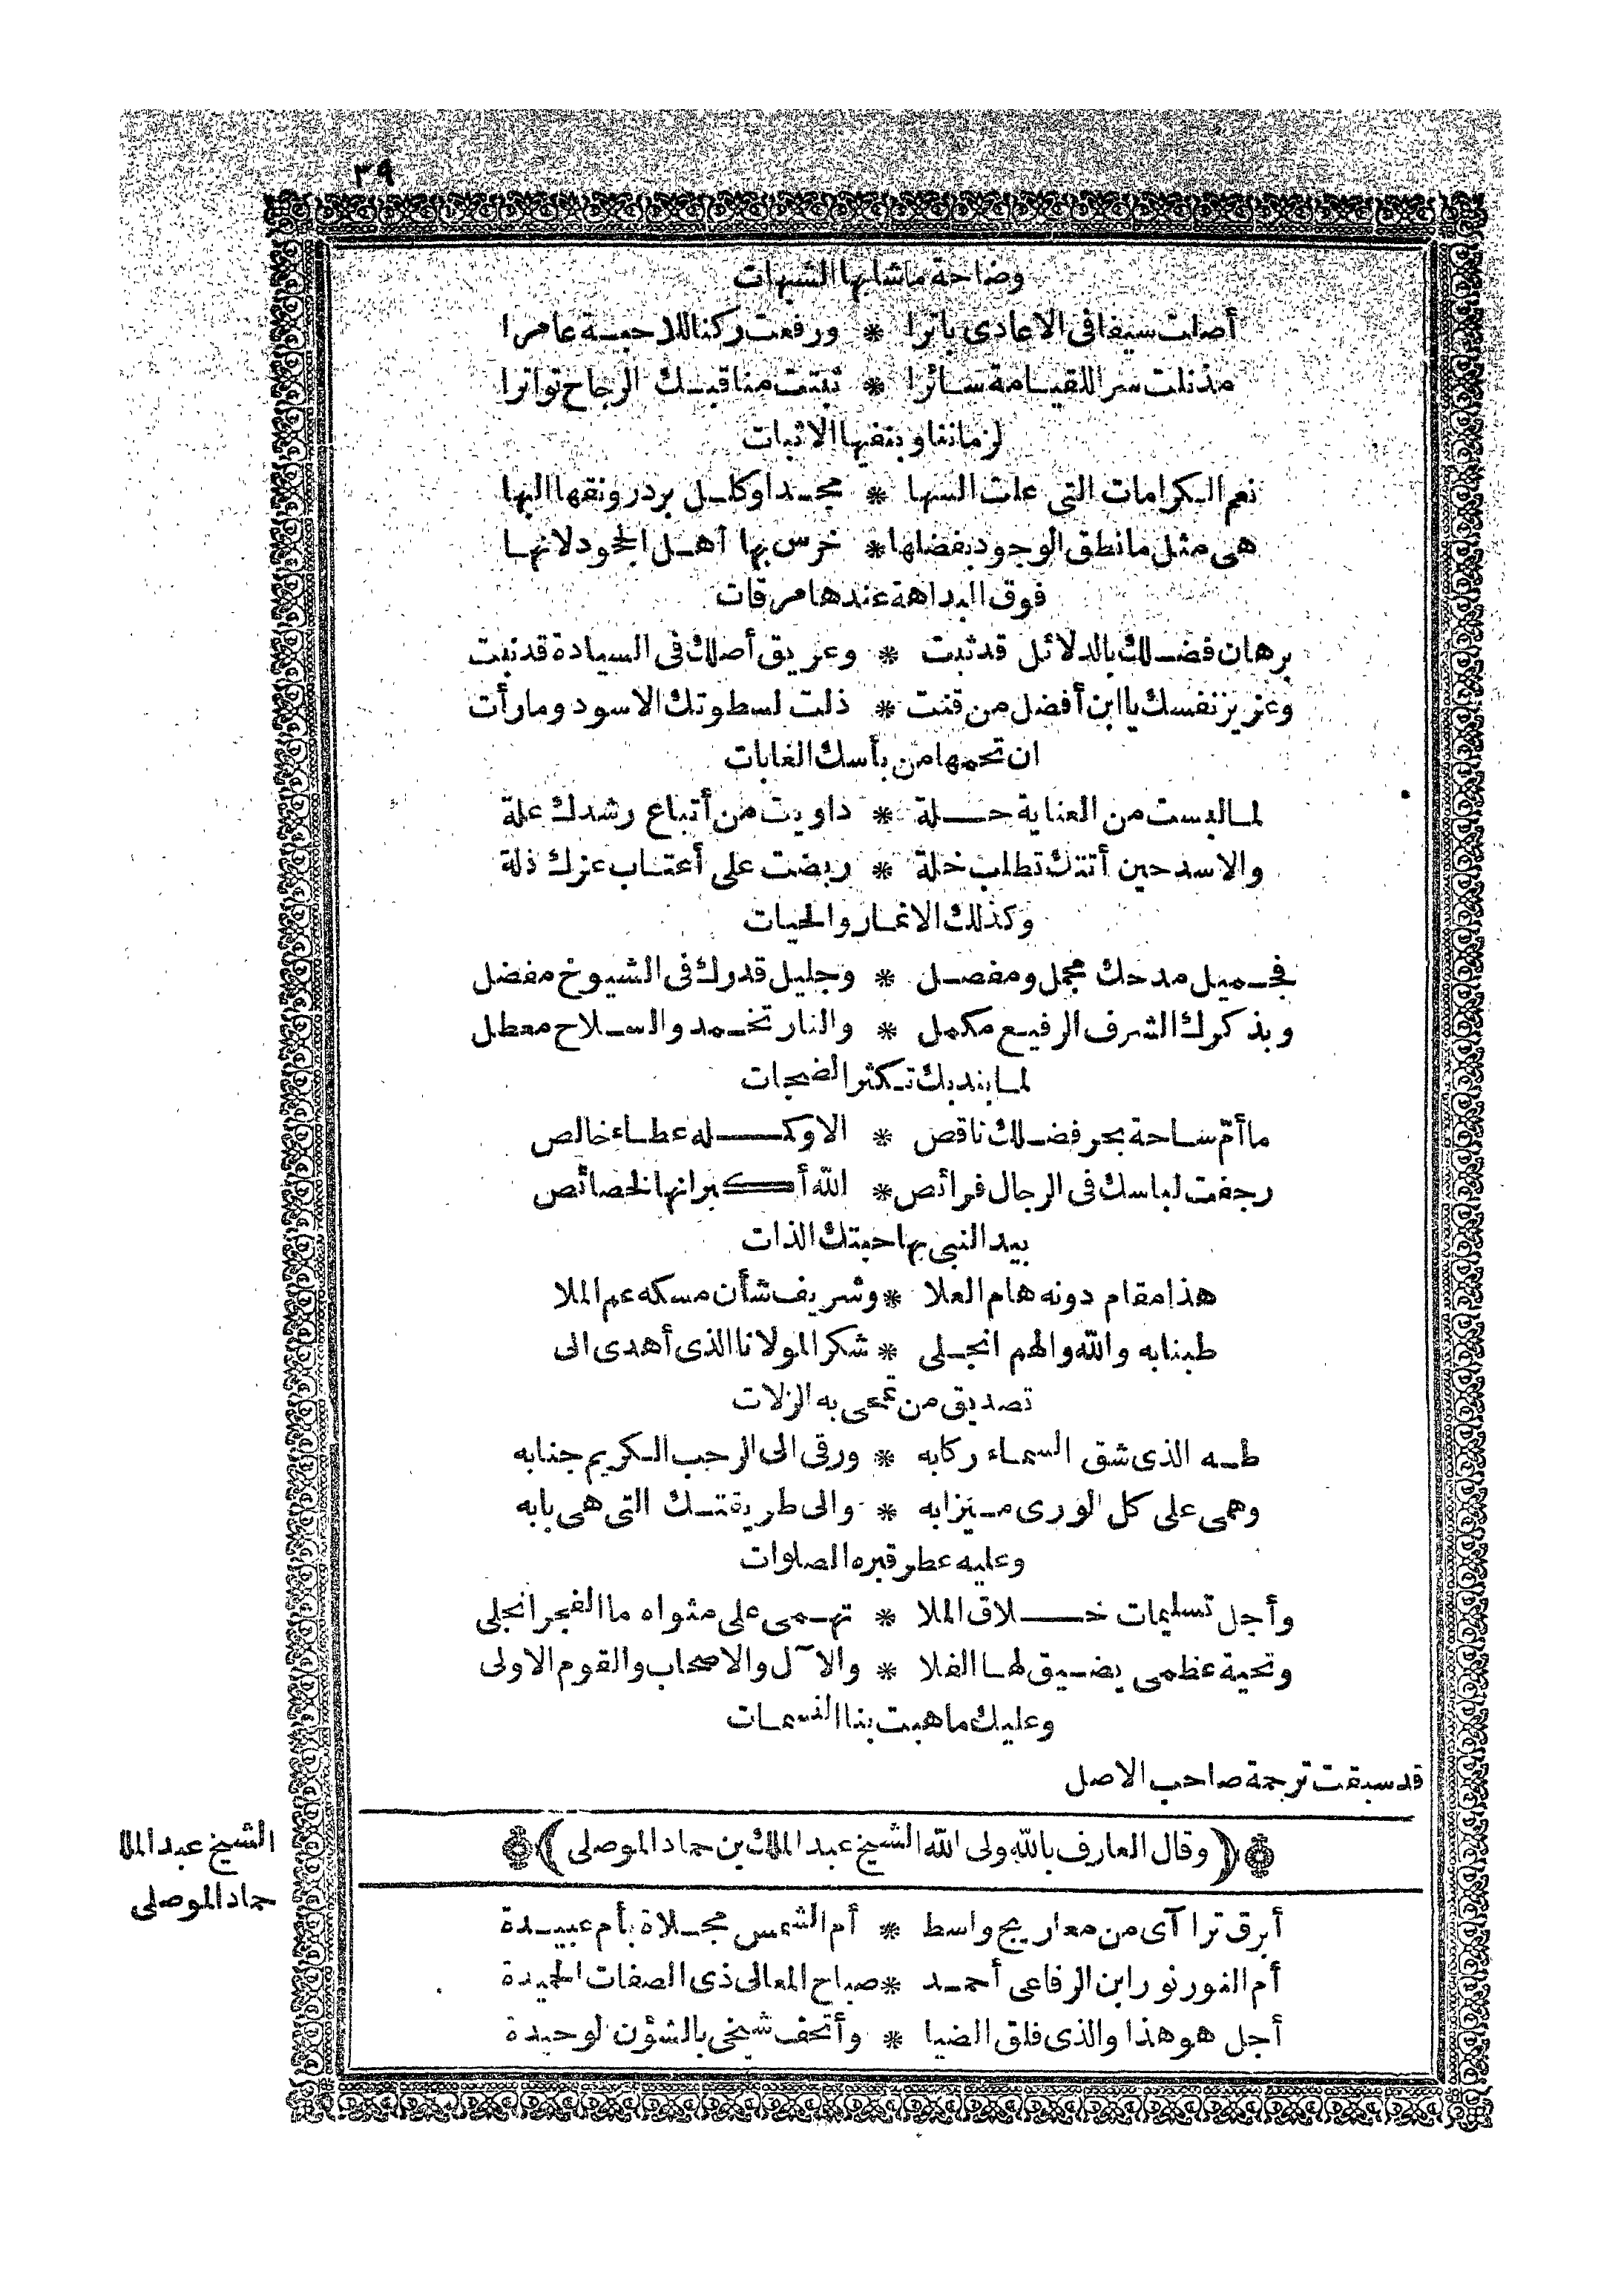 ٣٩
وضاحة ماشابها الشبهات
أصلت سيفا فى الاعادى باترا * ورفعت ركنا للاحبـة عامرا
مذنلت سر اللقيـامة سـائرا * ثبتت مناقبـك الرجاح تواترا
لزماننا وبتفيها الاثبات
نعم الـكرامات التى علت السها * مجـدا وكلـل بردرونقها البها
هى مثل مانطق الوجود بفضلها * خرس بها أهـل الجحود لانهـا
فوق البداهة عندها مرقات
برهان فضـلك بالدلائل قدثبتت * وعريق أصلك فى السيادة قدنبتت
وعزيز نفسك ياابن أفضل من قنت * ذلت لسطوتك الاسود ومارأت
ان تحمها من بأسك الغابات
لمـا لبست من العناية حـلة * داويت من أتباع رشدك علة
والاسد حين أتتك تطلب خلة * ربضت على أعتـاب عزك ذلة
وكذلك الانمـار والحيات
فجـميل مدحك مجمل ومفصـل * وجليل قدرك فى الشيوخ مفضل
وبذكرك الشرف الرفيـع مكمل * والنار تخـمد والسـلاح معطل
لمـا بنديك تـكثر الضجات
ماأمّ سـاحة بحر فضـلك ناقص * الا وكـله عطـاء خالص
رجفت لباسك فى الرجال فرائص * الله أكـبر انها لخصائص
بيد النبى بها حبتك الذات
هذا مقام دونه هام العلا * وشريف شأن مسكه عم الملا
طبنا به والله والهم انجـلى * شكرا لمولانا الذى أهدى الى
تصديق من تمحى به الزلات
طـه الذى شق السمـاء ركابه * ورقى الى الرحب الـكريم جنابه
وهمى على كل الورى مـيزابه * والى طريقتـك التى هى بابه
وعليه عطر قبره الصلوات
وأجل تسليمات خـلاق الملا * تهـمى على مثواه ما الفجر انجلى
وتحية عظمى يضـيق لهـا الفلا * والآل والاصحاب والقوم الاولى
وعليك ماهبت بنا النسمـات
قد سبقت ترجمة صاحب الاصل
الشيخ عبد الملا
حماد الموصلى
﴿وقال العارف بالله ولى الله الشيخ عبد الملك بن حماد الموصلى﴾
أبرق تراآى من معاريج واسط * أم الشمس مجـلاة بأم عبيـدة
أم النور نور ابن الرفاعى أحمـد * صباح المعالى ذى الصفات الحميدة
أجل هو هذا والذى فلق الضيا * وأتحف شيخى بالشؤن لوحيدة